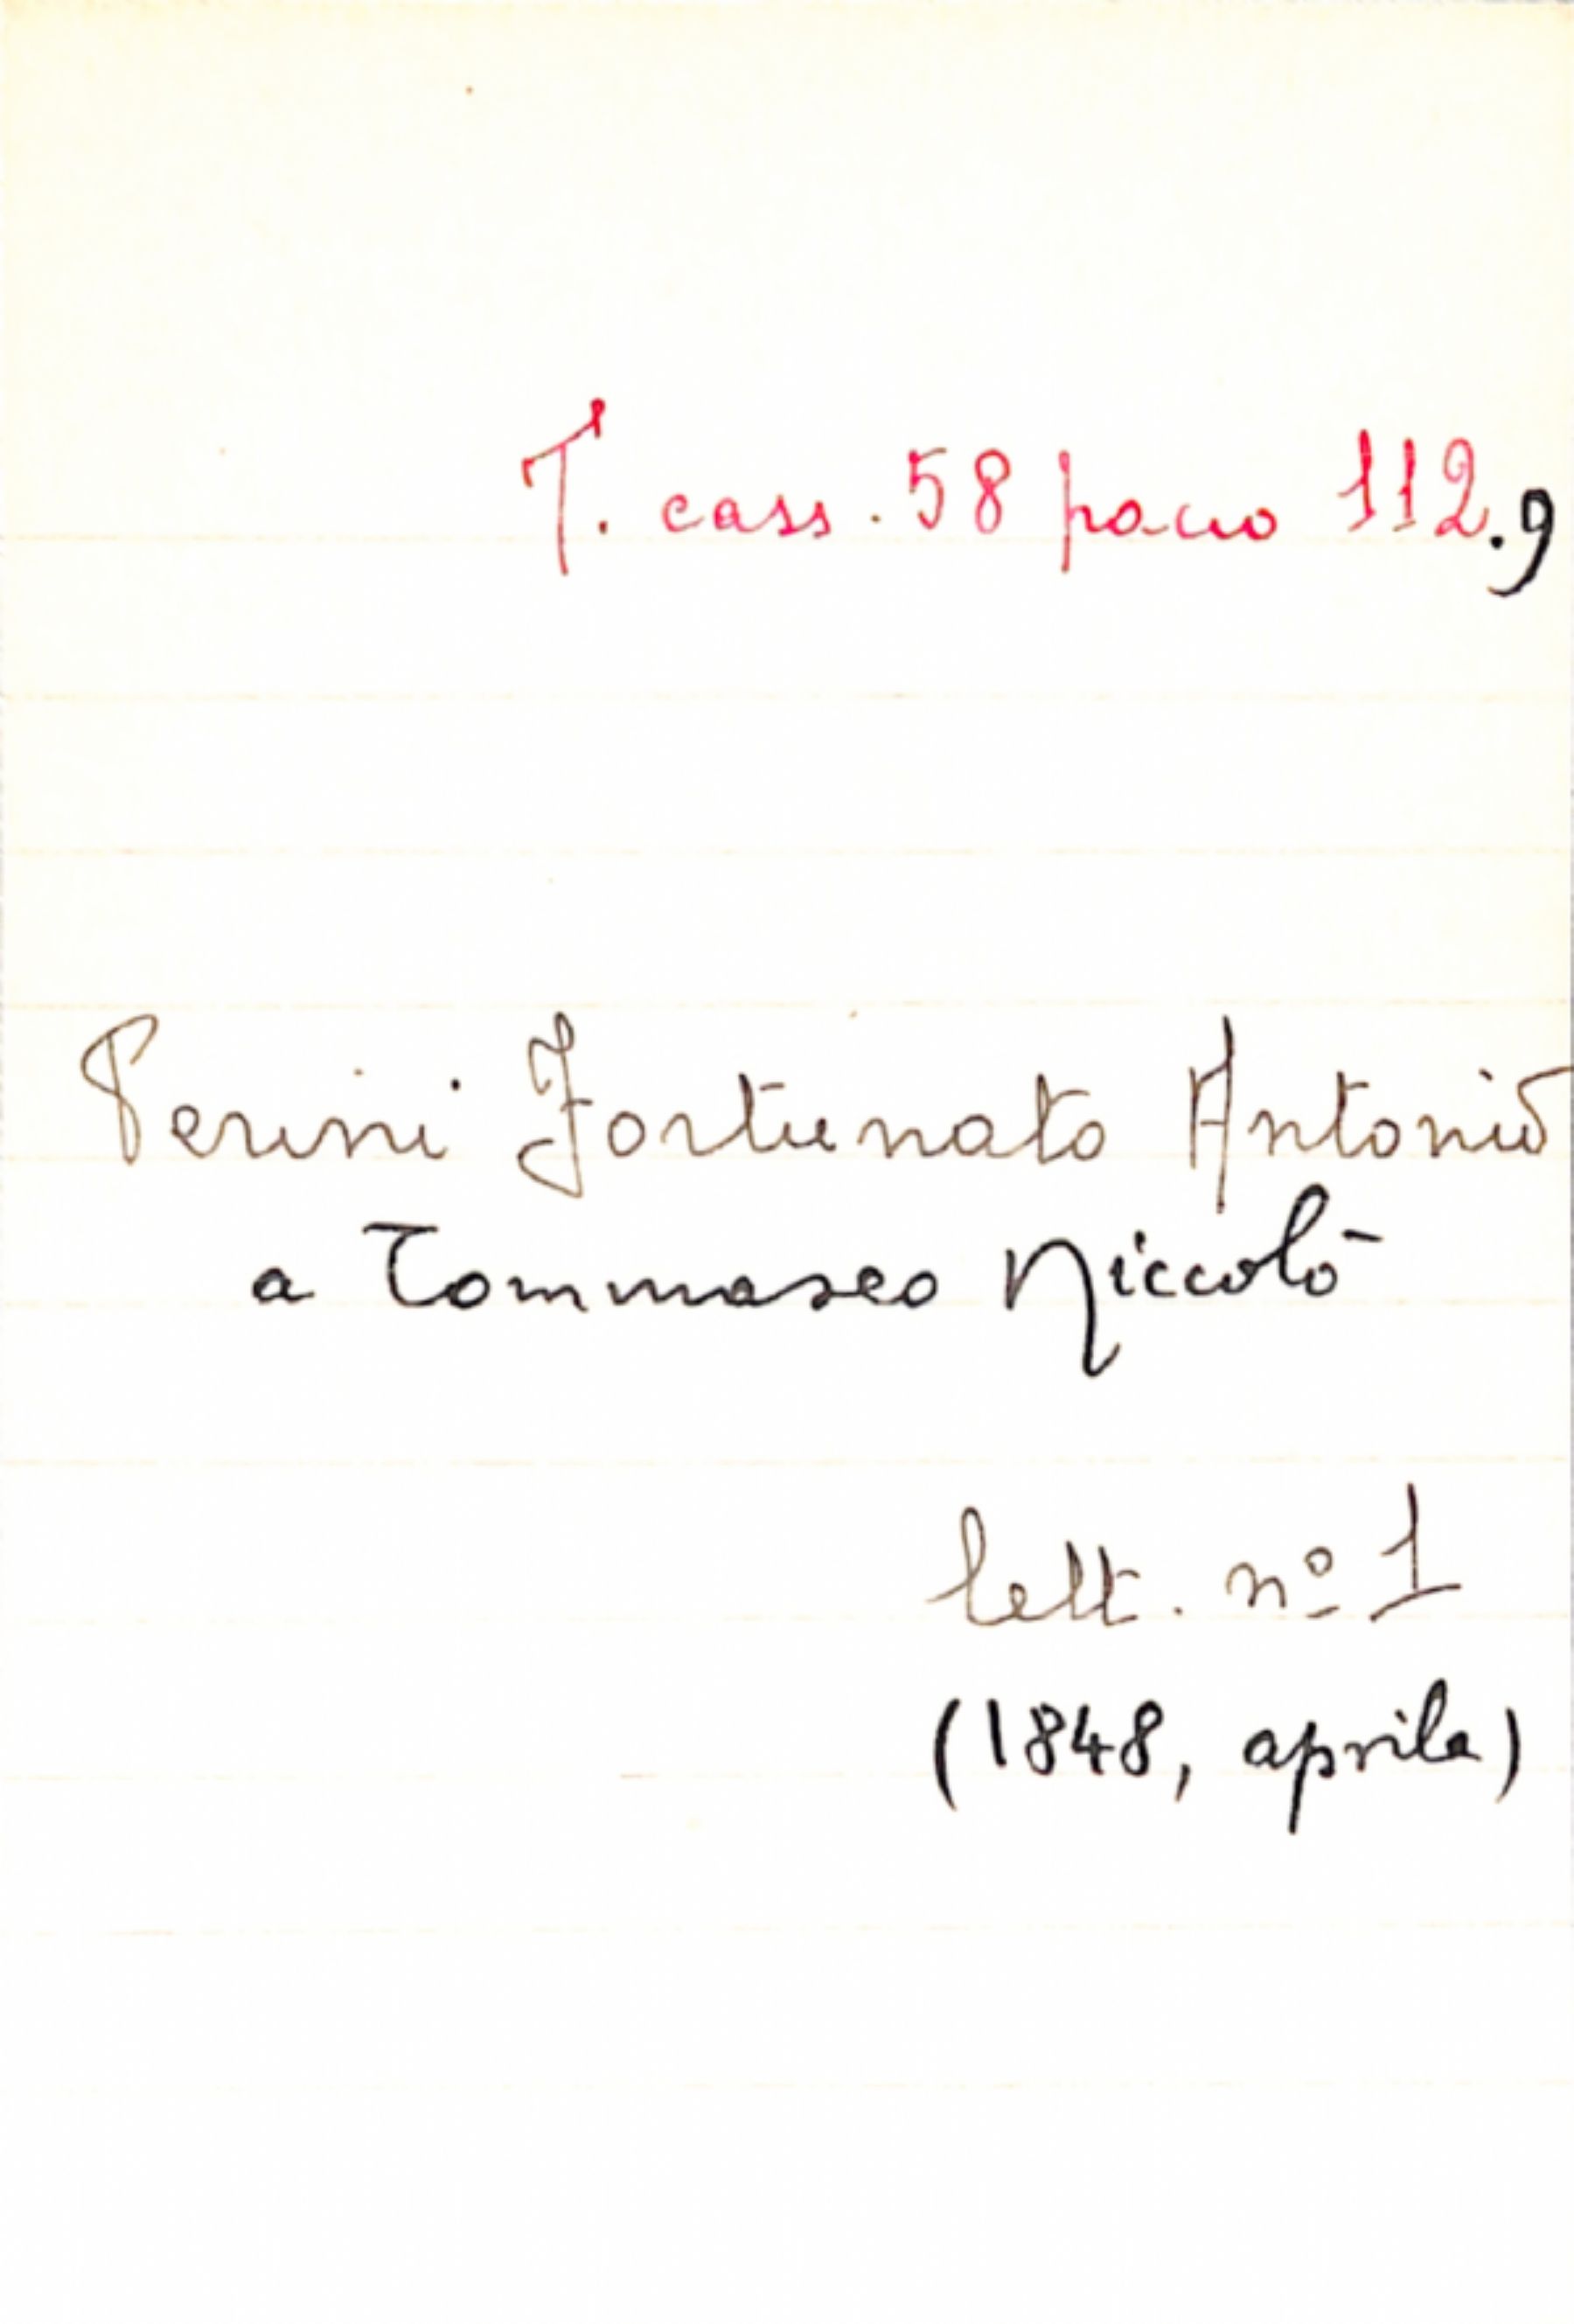 T. cass. 58 pacco 112.9
Perini Fortunato Antonio
a Tommaseo Niccolò
lett. nº 1
(1848, aprile)